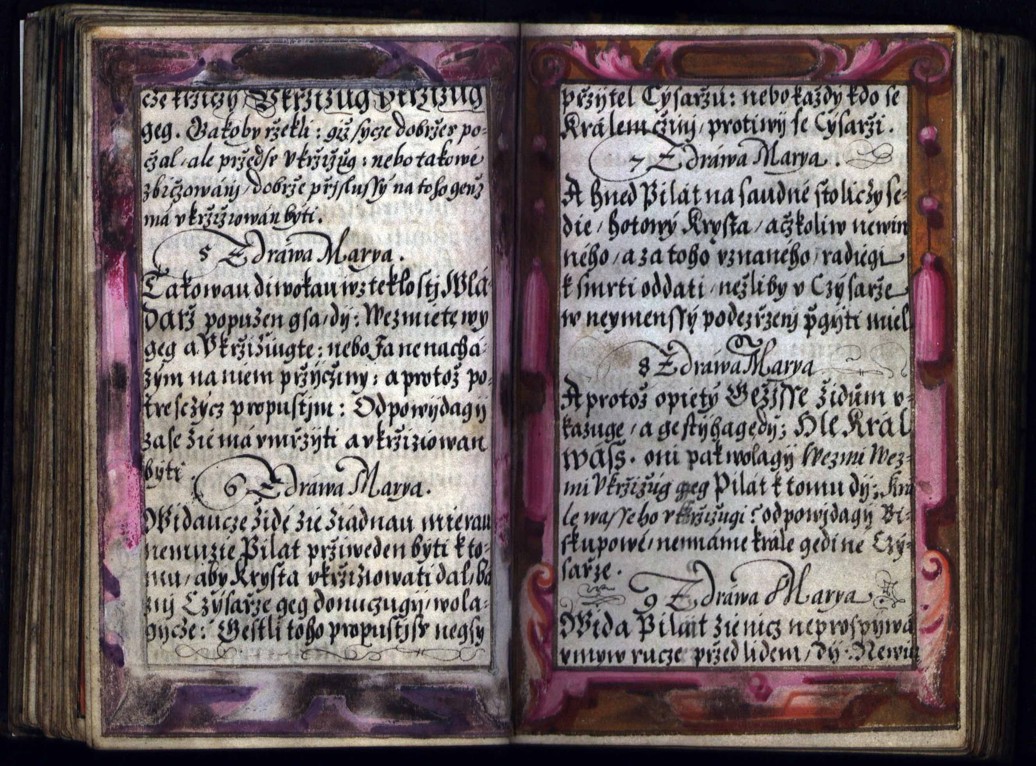 cze krziczy Vkržižůg Vkržižůg
geg. Gakoby ržekli: giž sycze dobržes po-
czal, ale przedse vkržižůg: nebo takowe
zbiczowánj, dobrže přjslussý na toho genž
má vkržižowán býti.
5 Zdráwa Marya.
Takowau diwokau wzteklostj Wla-
darž popuzen gsa, dý: Wezmiete wy
geg a Vkržižůgte: nebo Ja nenachá-
zým na niem pržýcžiny: a protož po-
tresczýcz propustjm: Odpowýdagy
zase žie má vmržýti a vkržižiowan
býti
6 Zdráwa Marya.
Widaucze židé žie žiadnau mierau
nemuzie Pilat prziweden býti k to-
mu, aby Krysta vkržižiowati dal, bá
znj Czýsarže geg donuczugij, wola-
gycze: Gestli toho propustjss negsy
přzýtel Cýsaržů: nebo každý kdo se
Králem čzinj, protiwj se Cýsarži.
7 Zdráwa Marya.
A hned Pilát na saudné stoliczy se-
die, hotowý Krysta, ačkoliw newin
ného, a za toho vznaného, radiegi
k smrti oddati, nežli by v Czýsarže
w neymenssý podezrženj přigjti miel
8 Zdráwa Marya
A protož opiety Gežjsse židům v-
kazuge, a ge stýhagedý: Hle Král
wáss. oni pak wolagy Wezmi Wez-
mi Vkržižůg geg Pilát k tomu dý: Krá
le wasseho vkržižugi? odpowjdagy Bi-
skupowé, nemáme krále gedine Czý-
sarže.
9 Zdráwa Marya
Wida Pilát žie nicz neprospýwá
vmyw rucze przed lidem, dý: Newin